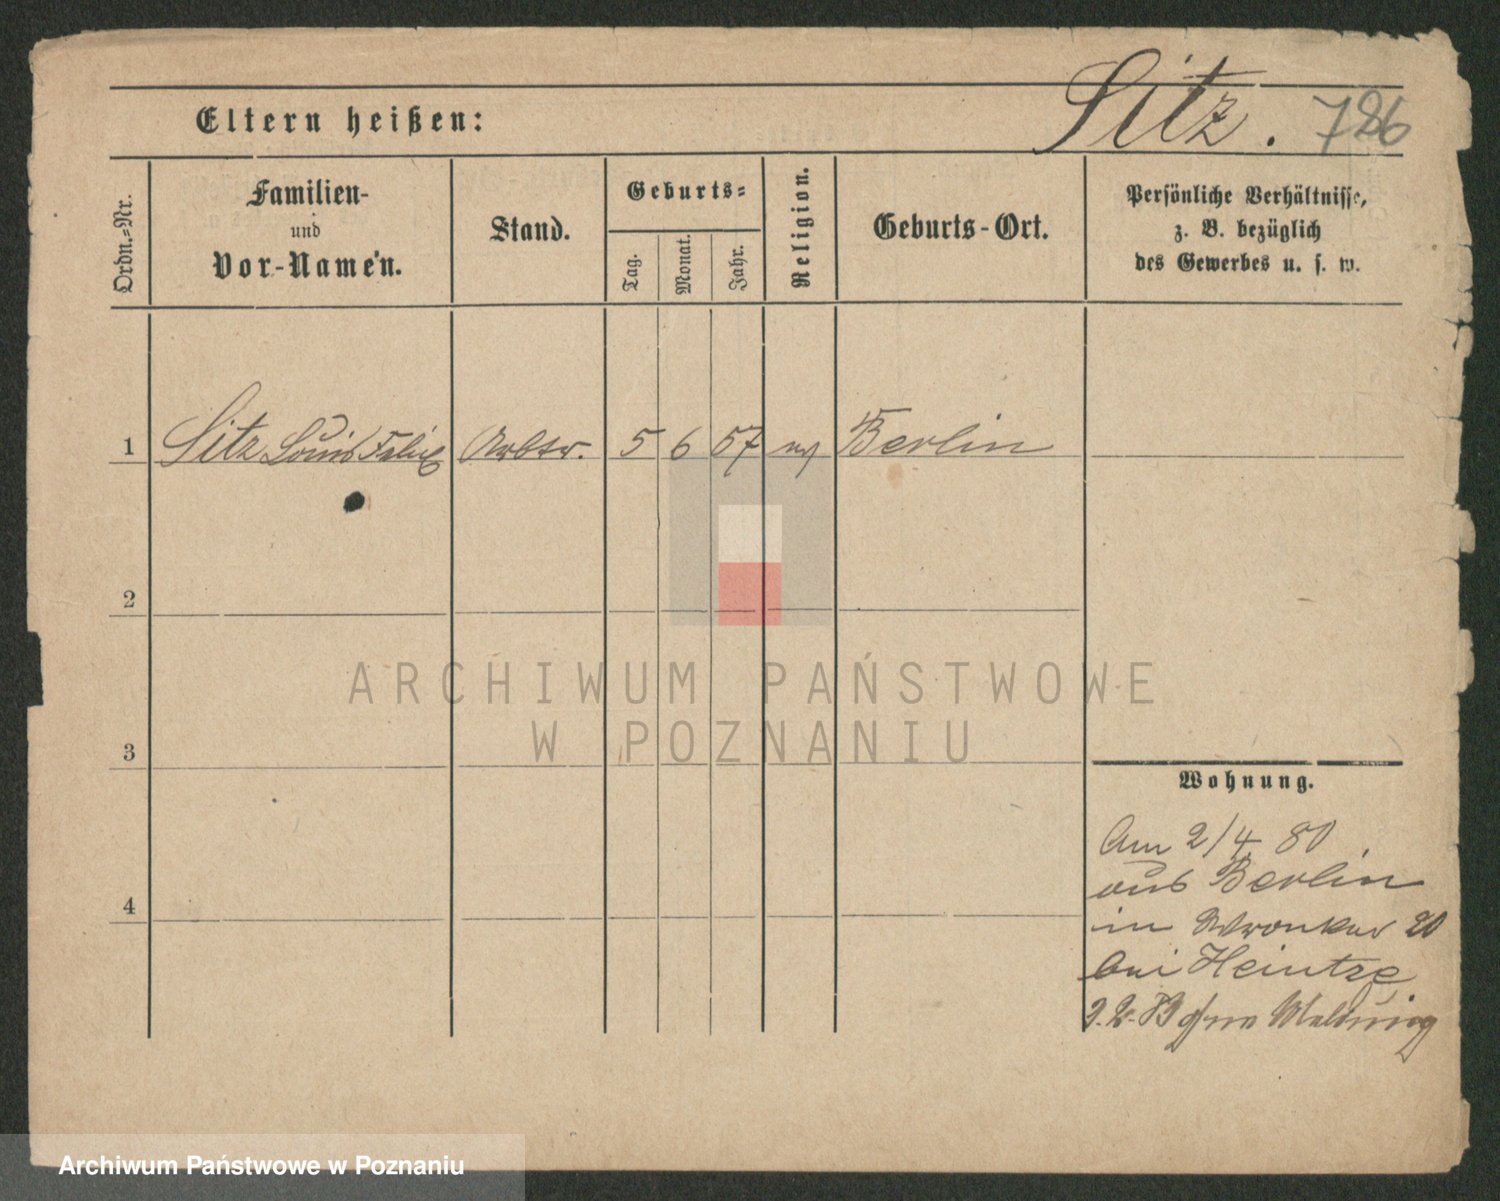 Sitz. 786
Eltern heißen:
Ordn.-Nr.
Familien-
und
Vor-Namen.
Stand.
Geburts-
Tag.
Monat.
Jahr.
Religion.
Geburts-Ort.
Persönliche Verhältnisse,
z. B. bezüglich
des Gewerbes u. s. w.
1 Sitz Louis Felix Arbtr. 5 6 57 ev Berlin
2
3
4
Wohnung.
Am 2/4 80
aus Berlin
in Wronker 20
bei Heintze
ohne Meldung
ARCHIWUM PAŃSTWOWE
W POZNANIU
Archiwum Państwowe w Poznaniu